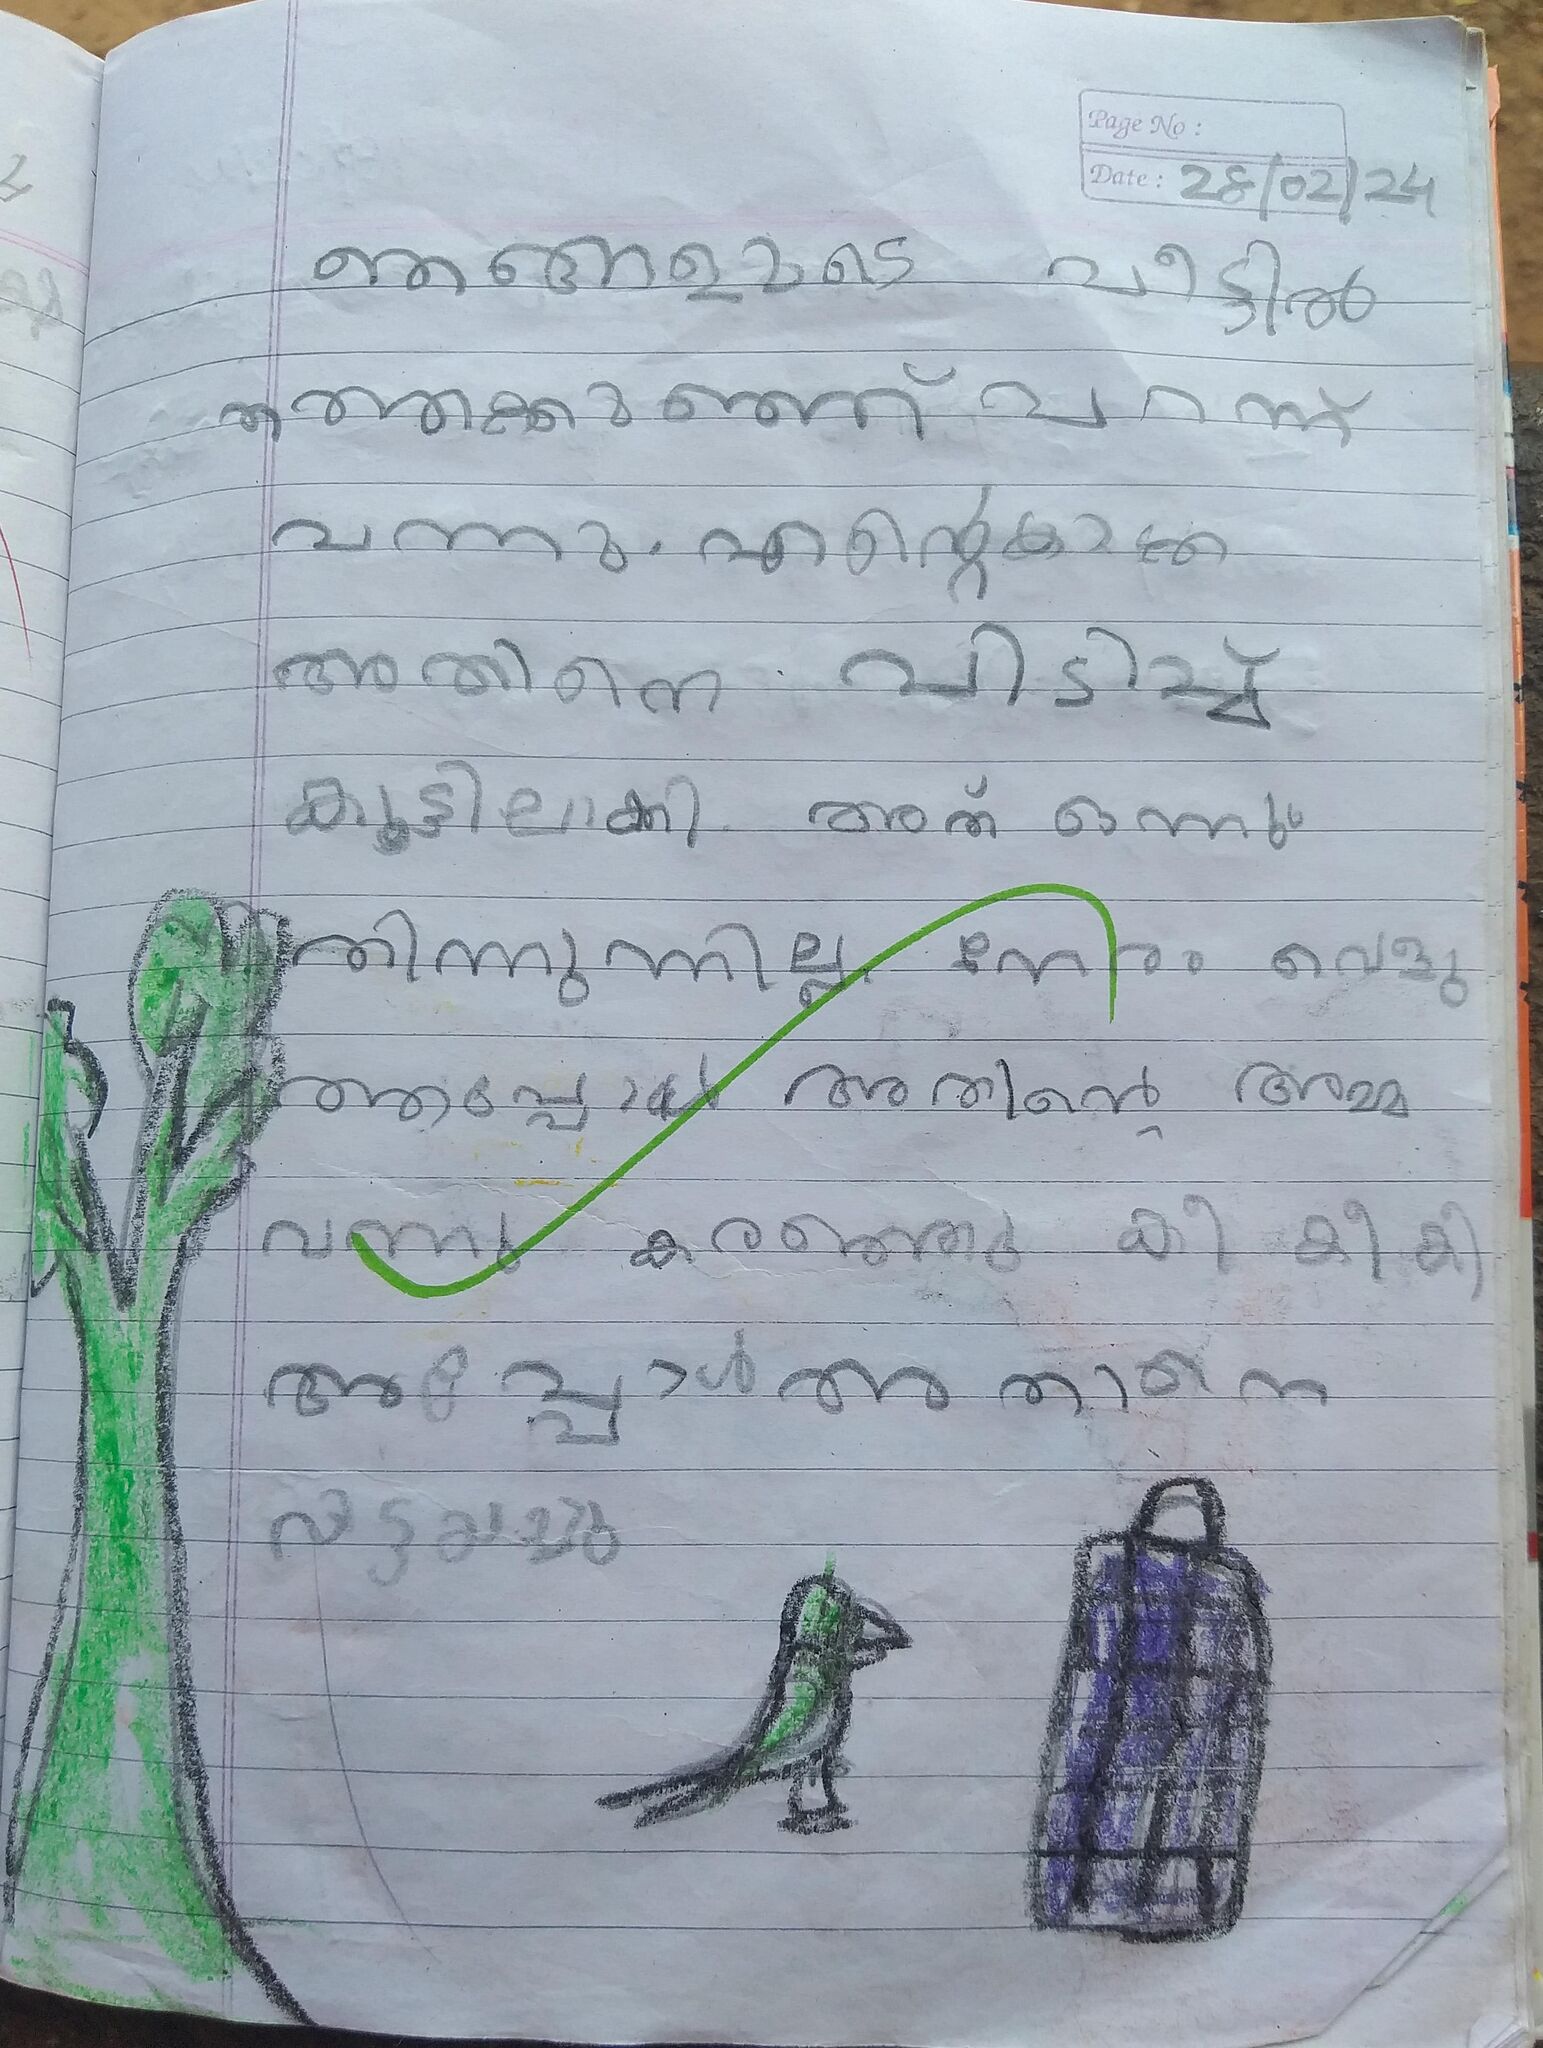 Page No :
Date : 28/02/24
ഞങ്ങളുടെ വീട്ടിൽ
തത്തക്കുഞ്ഞ് പറന്ന്
വന്നു. എൻ്റെ കാക്ക
അതിനെ പിടിച്ച്
കൂട്ടിലാക്കി. അത് ഒന്നും
തിന്നുന്നില്ല. നേരം വെളു
ത്തപ്പോൾ അതിൻ്റെ അമ്മ
വന്നു കരഞ്ഞു കീ കീ കീ
അപ്പോൾ അതിനെ
വിട്ടയച്ചു